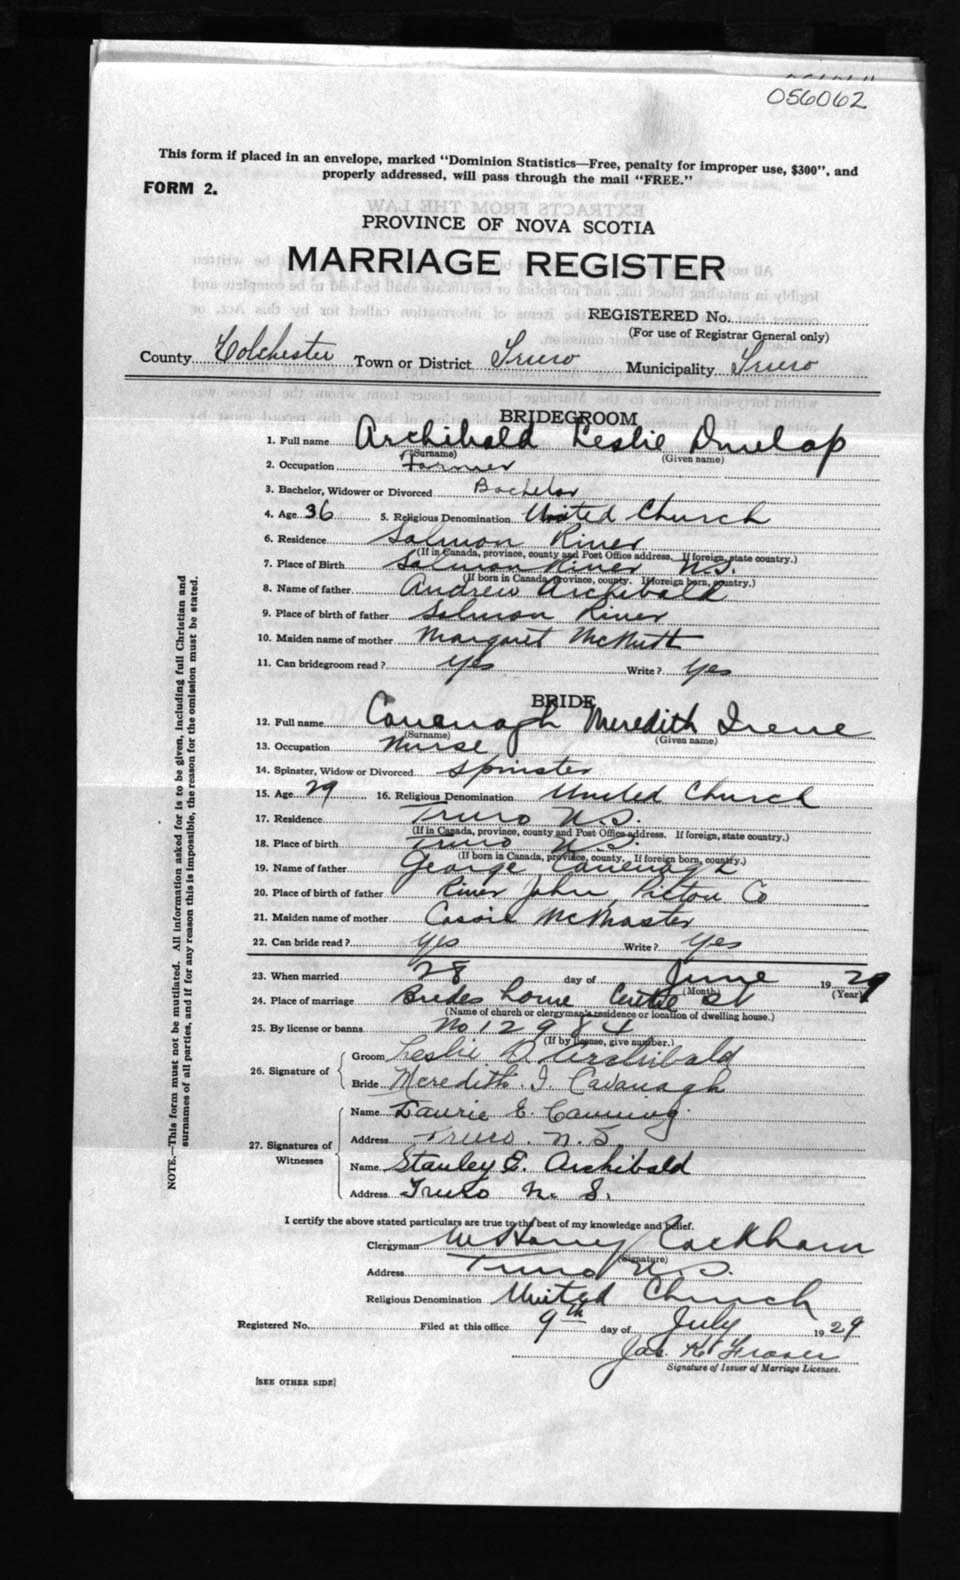 056062
This form if placed in an envelope, marked "Dominion Statistics—Free, penalty for improper use, $300", and
properly addressed, will pass through the mail "FREE."
FORM 2.
PROVINCE OF NOVA SCOTIA
MARRIAGE REGISTER
REGISTERED No.
(For use of Registrar General only)
County Colchester Town or District Truro Municipality Truro
BRIDEGROOM
1. Full name Archibald Leslie Dunlap
(Surname) (Given name)
2. Occupation Farmer
3. Bachelor, Widower or Divorced Bachelor
4. Age 36 5. Religious Denomination United Church
6. Residence Salmon River
(If in Canada, province, county and Post Office address. If foreign, state country.)
7. Place of Birth Salmon River N.S.
(If born in Canada, province, county. If foreign born, country.)
8. Name of father Andrew Archibald
9. Place of birth of father Salmon River
10. Maiden name of mother Margaret McNutt
11. Can bridegroom read? Yes Write? Yes
BRIDE
12. Full name Cavanagh Meredith Irene
(Surname) (Given name)
13. Occupation Nurse
14. Spinster, Widow or Divorced Spinster
15. Age 29 16. Religious Denomination United Church
17. Residence Truro N.S.
(If in Canada, province, county and Post Office address. If foreign, state country.)
18. Place of birth Truro N.S.
(If born in Canada, province, county. If foreign born, country.)
19. Name of father George Cavanagh
20. Place of birth of father River John, Pictou Co
21. Maiden name of mother Cassie McMaster
22. Can bride read? Yes Write? Yes
23. When married 28 day of June 1929
(Month) (Year)
24. Place of marriage Brides home
(Name of church or clergyman's residence or location of dwelling house.)
25. By license or banns No 12984
(If by license, give number.)
26. Signature of Groom Leslie D. Archibald
Bride Meredith I. Cavanagh
27. Signatures of Witnesses Name Laurie E. Canning
Address Truro. N.S.
Name Stanley E. Archibald
Address Truro N. S.
I certify the above stated particulars are true to the best of my knowledge and belief.
Clergyman W Harry Cockham
(Signature)
Address Truro N.S.
Religious Denomination United Church
Registered No. Filed at this office 9th day of July 1929
Jas. K. Fraser
Signature of Issuer of Marriage Licenses.
[SEE OTHER SIDE]
NOTE.—This form must not be mutilated. All information asked for is to be given, including full Christian and
surnames of all parties, and if for any reason this is impossible, the reason for the omission must be stated.